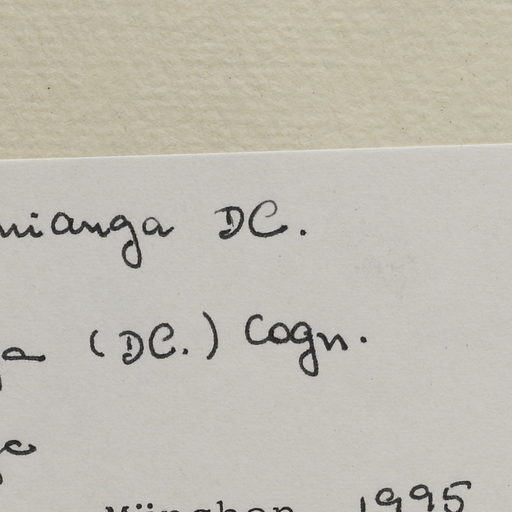 nianga DC.
ga (DC.) Cogn.
München 1995